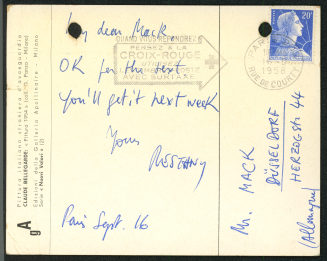 My dear Mack
OK for the text
You'll get it next week
Yours
RESTANY
Paris Sept. 16
QUAND VOUS REPONDREZ
PENSEZ A LA
CROIX-ROUGE
UTILISEZ
AVEC SURTAXE
20F
PARIS
1958
RUE DE COURCELLES
Mr. MACK
DÜSSELDORF
HERZOGstr 44
(Allemagne)
CLAUDE BELLEGARDE:
Edizioni della Galleria Apollinaire - Milano
gA